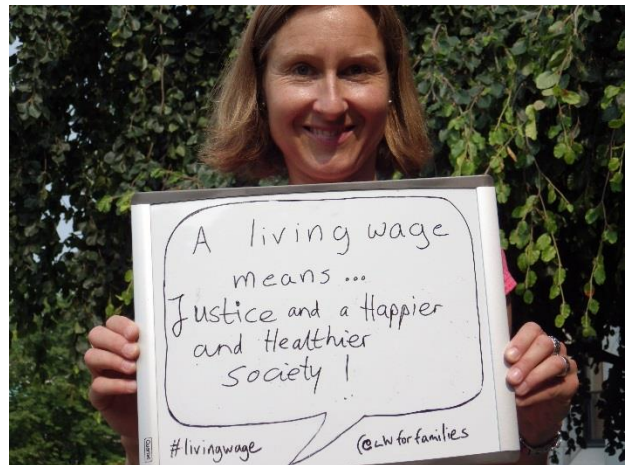 A living wage
means...
Justice and a Happier
and Healthier
society!
#livingwage
@LWforfamilies